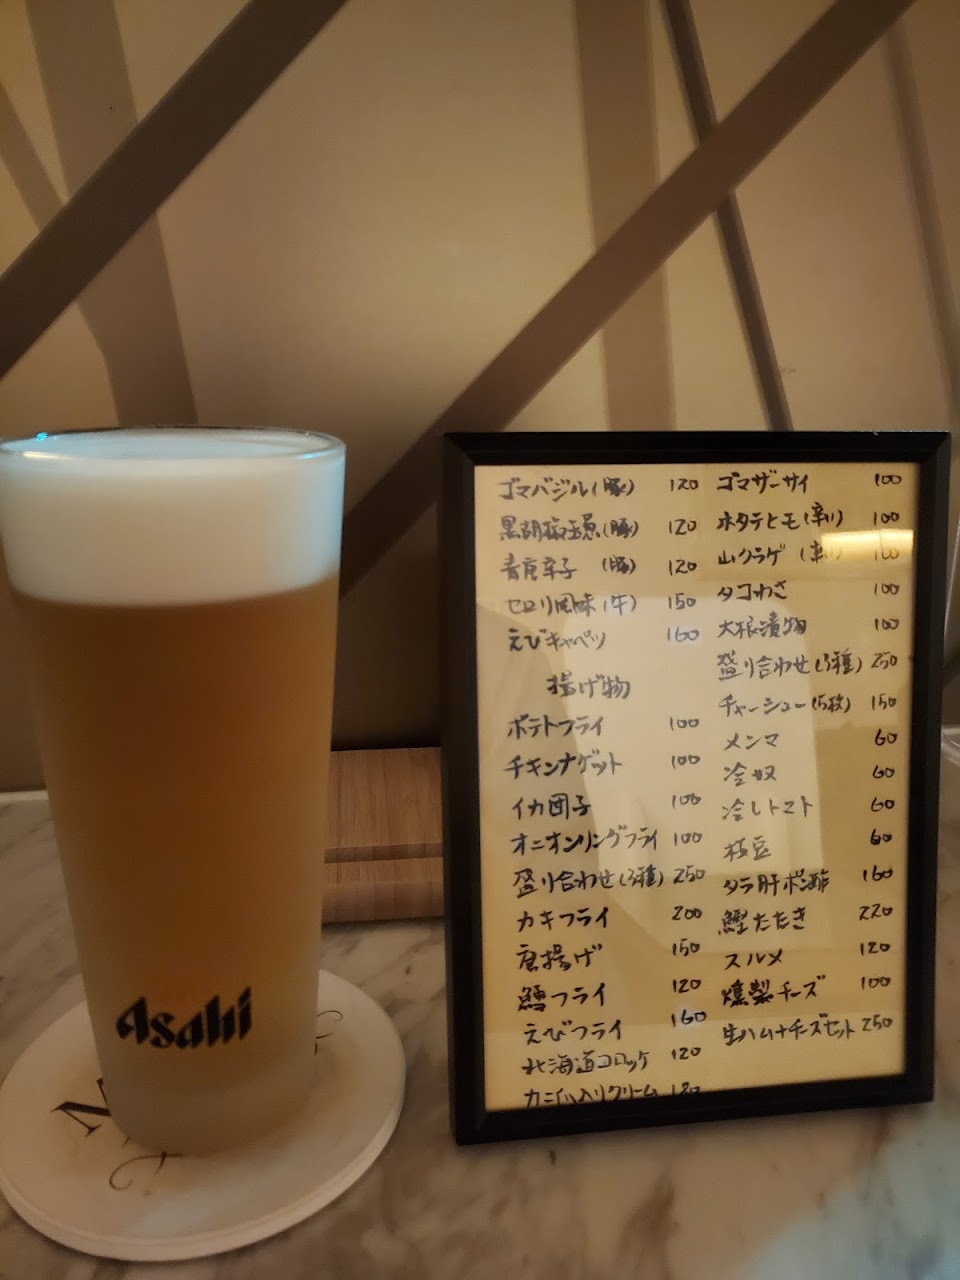 ゴマバジル(豚) 120
黒胡椒玉葱(豚) 120
青唐辛子 (豚) 120
セロリ風味(牛) 150
えびキャベツ 160
揚げ物
ポテトフライ 100
チキンナゲット 100
イカ団子 100
オニオンリングフライ 100
盛り合わせ(3種) 250
カキフライ 200
唐揚げ 150
鱈フライ 120
えびフライ 160
北海道コロッケ 120
カニ入りクリーム 120
ゴマザーサイ 100
ホタテヒモ(辛い) 100
山クラゲ (辛い) 100
タコわさ 100
大根漬物 100
盛り合わせ(3種) 250
チャーシュー(5枚) 150
メンマ 60
冷奴 60
冷しトマト 60
枝豆 60
タラ肝ポン酢 160
鰹たたき 220
スルメ 120
燻製チーズ 100
生ハム+チーズセット 250
Asahi